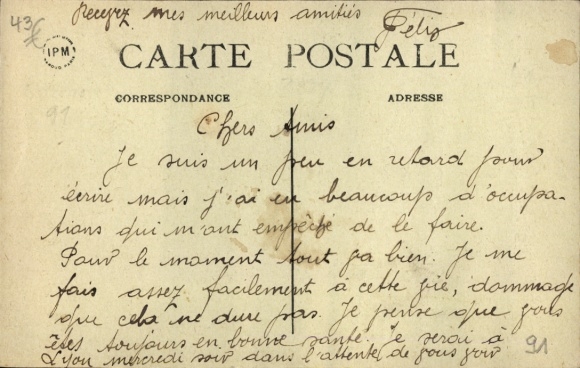 Recevez mes meilleurs amitiés
Félix
43
IPM
CARTE POSTALE
CORRESPONDANCE
ADRESSE
91
Chers Amis
Je suis un peu en retard pour
écrire mais j'ai eu beaucoup d'occupa-
tions qui m'ont empêché de le faire.
Pour le mamant tout va bien. Je me
fais assez facilement à cette vie, dommage
que cela ne dure pas. Je pense que vous
êtes toujours en bonne santé. Je serai à
Lyon mercredi soir dans l'attente de vous voir
91